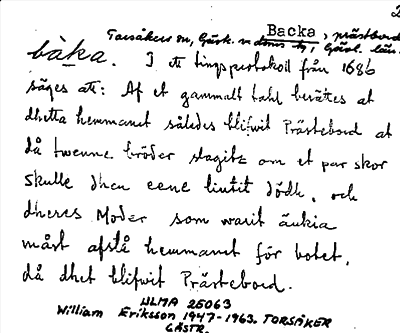 2
Backa, prästbord
Torsåkers sn, Gästr. n doms. h, Gävl. län
bàka. I ett tingsprotokoll från 1686
säges att: Af et gammalt tahl berättes at
dhetta hemmanet således blifwit Prästebord at
då twenne bröder slagitz om et par skor
skulle dhen eene liutit dödh, och
dheras Moder som warit änkia
måst afstå hemmanet för botet,
då dhet blifwit Prästebord.
ULMA 25063
William Eriksson 1947-1963. TORSÅKER
GÄSTR.